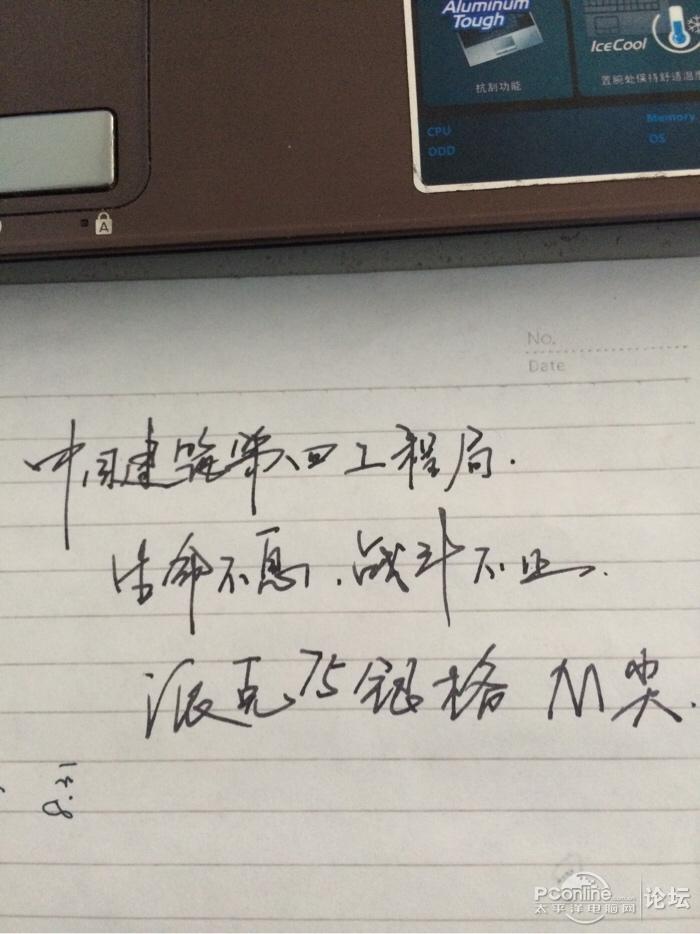 Aluminum
Tough
抗刮功能
IceCool
置腕处保持舒适温度
CPU
Memory
ODD
OS
A
No.
Date
中国建筑第四工程局.
生命不息,战斗不止.
派克75银格 M尖.
8.21
PConline.com.cn
太平洋电脑网
论坛